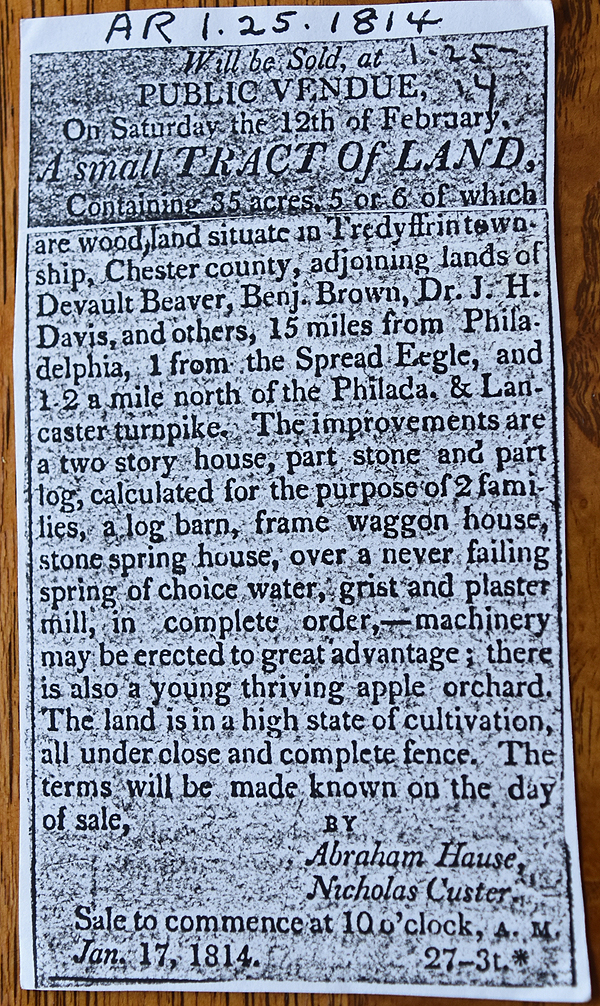 AR 1.25.1814
Will be Sold, at 1-25-
PUBLIC VENDUE, 14
On Saturday the 12th of February,
A small TRACT Of LAND,
Containing 35 acres, 5 or 6 of which
are wood,land situate in Tredyffrin town-
ship, Chester county, adjoining lands of
Devault Beaver, Benj. Brown, Dr. J. H.
Davis, and others, 15 miles from Phila-
delphia, 1 from the Spread Eegle, and
1 2 a mile north of the Philada. & Lan-
caster turnpike. The improvements are
a two story house, part stone and part
log, calculated for the purpose of 2 fami-
lies, a log barn, frame waggon house,
stone spring house, over a never failing
spring of choice water, grist and plaster
mill, in complete order,—machinery
may be erected to great advantage; there
is also a young thriving apple orchard.
The land is in a high state of cultivation,
all under close and complete fence. The
terms will be made known on the day
of sale, BY
Abraham Hause,
Nicholas Custer.
Sale to commence at 10 o'clock, A. M.
Jan. 17, 1814. 27-3t.*